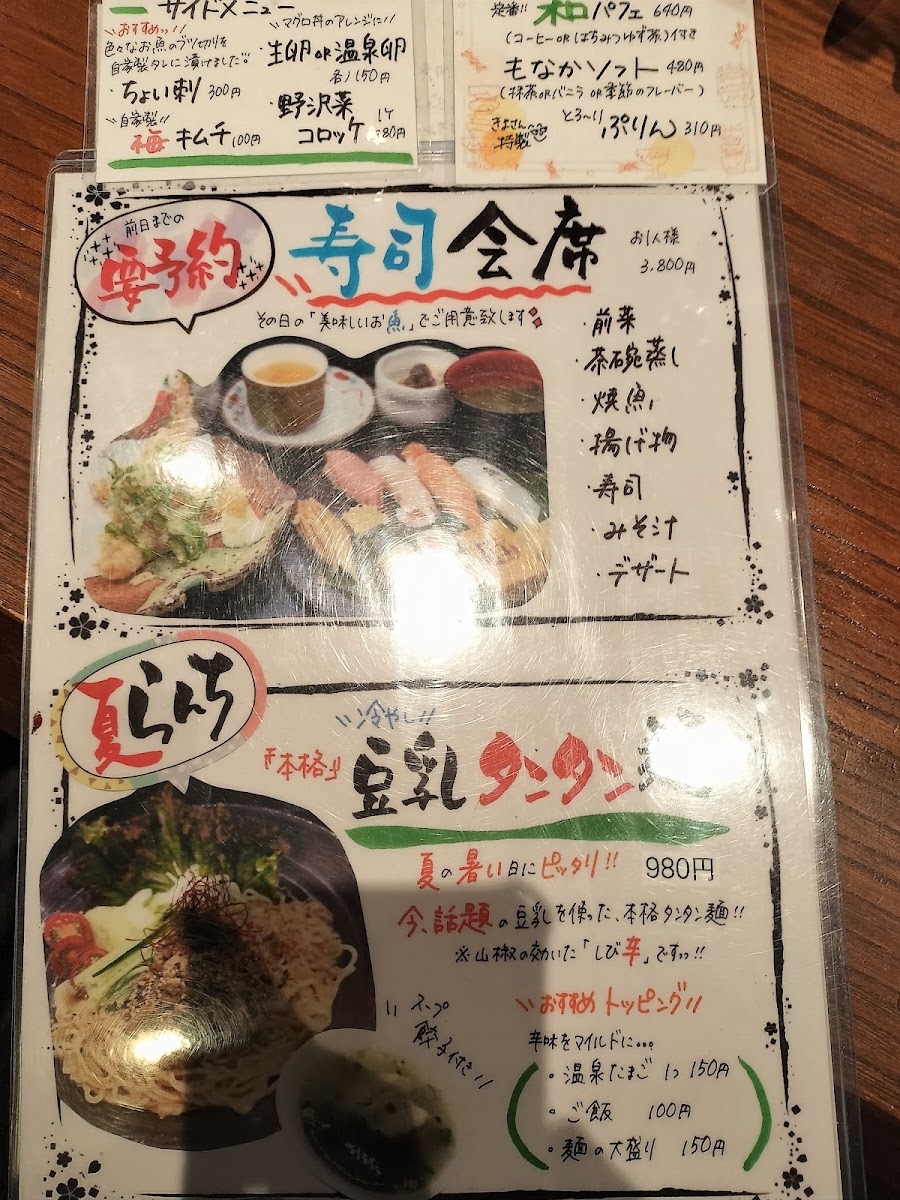 サイドメニュー
おすすめッ!!
色々なお魚のブツ切りを
自家製タレに漬けました。
・ちょい刺 300円
自家製
梅キムチ 100円
マグロ丼のアレンジに!!
・生卵or温泉卵
各150円
・野沢菜
コロッケ
定番!! 和パフェ 640円
(コーヒーorはちみつゆず茶)付き
もなかソフト 480円
(抹茶orバニラor季節のフレーバー)
きよさん
特製
とろ〜り
ぷりん 310円
前日までの
要予約
寿司会席
お1人様
3,800円
その日の「美味しいお魚」でご用意致します
・前菜
・茶碗蒸し
・焼魚
・揚げ物
・寿司
・みそ汁
・デザート
夏らんち
冷やし!!
『本格』
豆乳タンタン
夏の暑い日にピッタリ!! 980円
今、話題の豆乳を使った、本格タンタン麺!!
※山椒の効いた「しび辛」ですッ!!
スープ
餃子付き!!
おすすめトッピング
辛味をマイルドに…
・温泉たまご 1つ 150円
・ご飯 100円
・麺の大盛り 150円